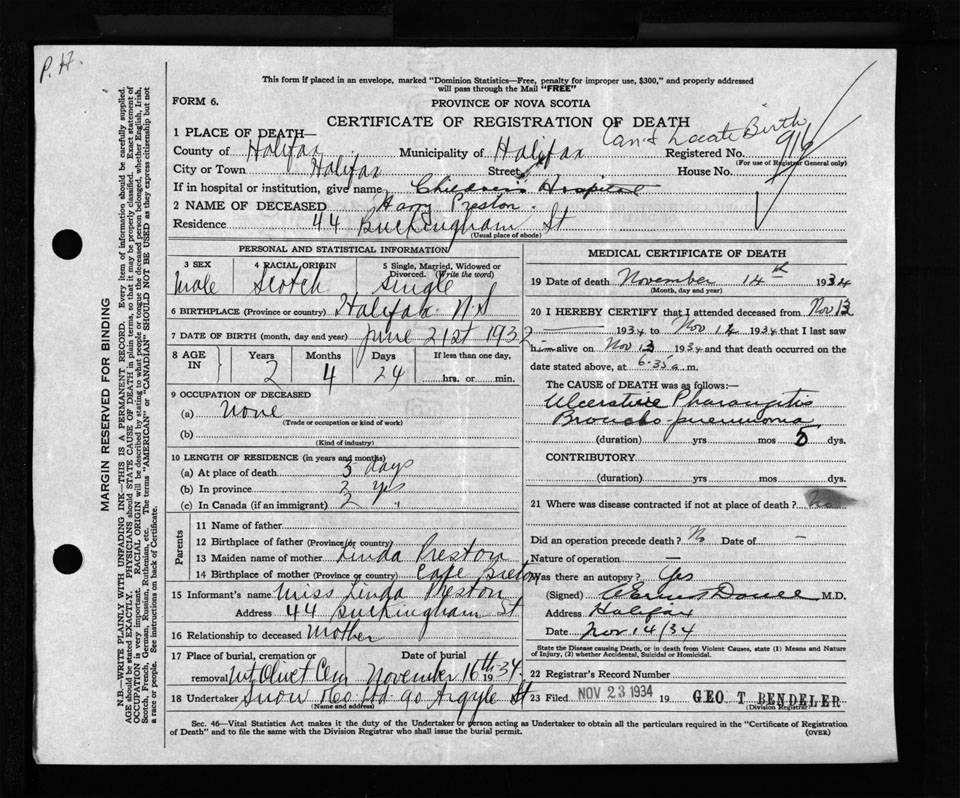 P.H.
This form if placed in an envelope, marked "Dominion Statistics—Free, penalty for improper use, $300," and properly addressed
will pass through the Mail "FREE"
FORM 6.
PROVINCE OF NOVA SCOTIA
CERTIFICATE OF REGISTRATION OF DEATH
Can't Locate Birth
1 PLACE OF DEATH—
County of Halifax Municipality of Halifax Registered No. 916
(For use of Registrar General only)
City or Town Halifax Street House No.
If in hospital or institution, give name Children's Hospital
2 NAME OF DECEASED Harry Preston.
Residence 44 Buckingham St
(Usual place of abode)
PERSONAL AND STATISTICAL INFORMATION
3 SEX 4 RACIAL ORIGIN 5 Single, Married, Widowed or Divorced. (Write the word)
Male Scotch Single
6 BIRTHPLACE (Province or country) Halifax N.S
7 DATE OF BIRTH (month, day and year) June 21st 1932
8 AGE IN Years Months Days If less than one day,
2 4 24 hrs. or min.
9 OCCUPATION OF DECEASED
(a) None
(Trade or occupation or kind of work)
(b)
(Kind of industry)
10 LENGTH OF RESIDENCE (in years and months)
(a) At place of death 5 days
(b) In province 2 yrs
(c) In Canada (if an immigrant) 2 "
Parents
11 Name of father
12 Birthplace of father (Province or country)
13 Maiden name of mother Linda Preston
14 Birthplace of mother (Province or country) Cape Breton
15 Informant's name Miss Linda Preston
Address 44 Buckingham St
16 Relationship to deceased Mother
17 Place of burial, cremation or removal Date of burial
Mt Olivet Cem November 16th 1934
18 Undertaker Snow & Co Ltd 90 Argyle St
(Name and address)
MEDICAL CERTIFICATE OF DEATH
19 Date of death November 14th 1934
(Month, day and year)
20 I HEREBY CERTIFY that I attended deceased from Nov 13
1934 to Nov 1934 that I last saw
him alive on Nov 13 1934 and that death occurred on the
date stated above, at 6.35 a.m.
The CAUSE OF DEATH was as follows:—
Ulcerative Pharangitis
Broncho pneumonia
(duration) yrs mos 5 dys.
CONTRIBUTORY
(duration) yrs mos dys.
21 Where was disease contracted if not at place of death?
Did an operation precede death? No Date of —
Nature of operation —
Was there an autopsy? Yes
(Signed) M.D.
Address Halifax
Date Nov 14/34
State the Disease causing Death, or in death from Violent Causes, state (1) Means and Nature
of Injury, (2) whether Accidental, Suicidal or Homicidal.
22 Registrar's Record Number
23 Filed NOV 23 1934 19 GEO T BENDELER
(Division Registrar)
Sec. 46—Vital Statistics Act makes it the duty of the Undertaker or person acting as Undertaker to obtain all the particulars required in the "Certificate of Registration
of Death" and to file the same with the Division Registrar who shall issue the burial permit.
(OVER)
MARGIN RESERVED FOR BINDING
N.B.—WRITE PLAINLY WITH UNFADING INK—THIS IS A PERMANENT RECORD. Every item of information should be carefully supplied.
AGE should be stated EXACTLY. PHYSICIANS should STATE CAUSE OF DEATH in plain terms, so that it may be properly classified. Exact statement of
OCCUPATION is very important. RACIAL ORIGIN will be described by stating to what people or tongue the deceased person belonged, whether English, Irish,
Scotch, French, German, Russian, Ruthenian, etc. The terms "AMERICAN" or "CANADIAN" SHOULD NOT BE USED as they express citizenship but not
a race or people. See instructions on back of Certificate.